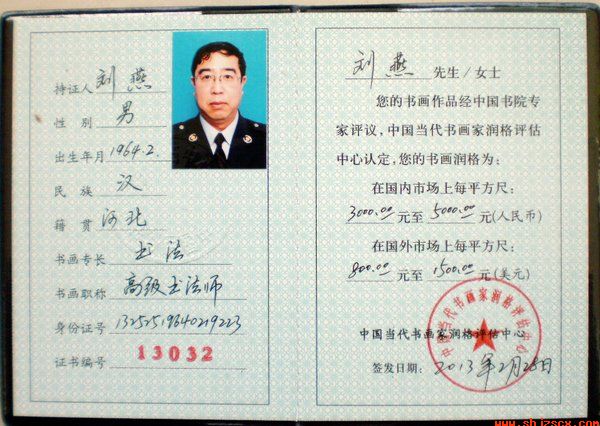 持证人 刘燕
性别 男
出生年月 1964.2.
民族 汉
籍贯 河北
书画专长 书法
书画职称 高级书法师
身份证号
证书编号 13032
刘燕 先生/女士
您的书画作品经中国书院专
家评议，中国当代书画家润格评估
中心认定，您的书画润格为：
在国内市场上每平方尺：
3000.00 元至 5000.00 元(人民币)
在国外市场上每平方尺：
800.00 元至 1500.00 元(美元)
中国当代书画家润格评估中心
中国当代书画家润格评估中心
签发日期： 2013年2月28日
www.shjzscx.com